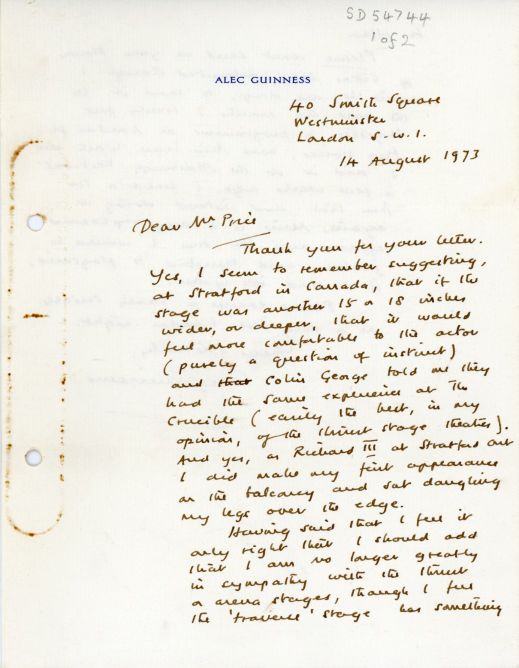 SD 54744
1 of 2
ALEC GUINNESS
40 Smith Square
Westminster
London S.W.1.
14 August 1973
Dear Mr Price
Thank you for your letter.
Yes, I seem to remember suggesting,
at Stratford in Canada, that if the
stage was another 15 or 18 inches
wider, or deeper, that it would
feel more comfortable to the actor
(purely a question of instinct)
and that Colin George told me they
had the same experience at The
Crucible (easily the best, in my
opinion, of the thrust stage theatres).
And yes, as Richard III at Stratford Ont
I did make my first appearance
on the balcony and sat dangling
my legs over the edge.
Having said that I feel it
only right that I should add
that I am no longer greatly
in sympathy with the thrust
or arena stages, though I feel
the 'traverse' stage has something